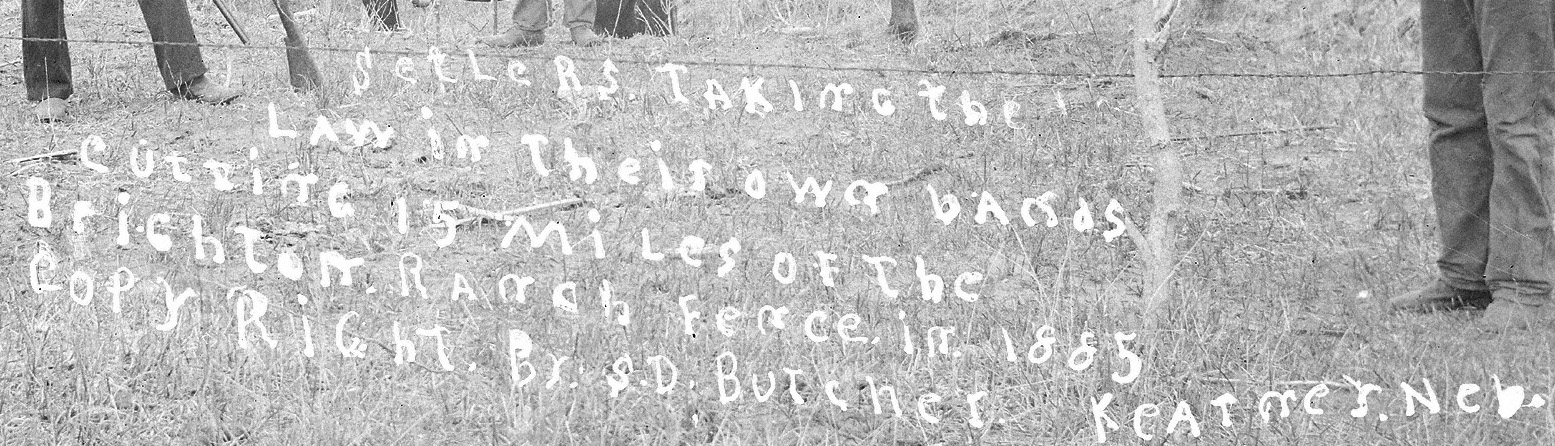 SetLeRS. TAKING the
LAW in Their own hANdS
CUTTING 15 MiLes OF The
BrighTon. RANch Fence. in. 1885
Copy RiGhT. By. S.D. BUTcher KeATNey. Neb.